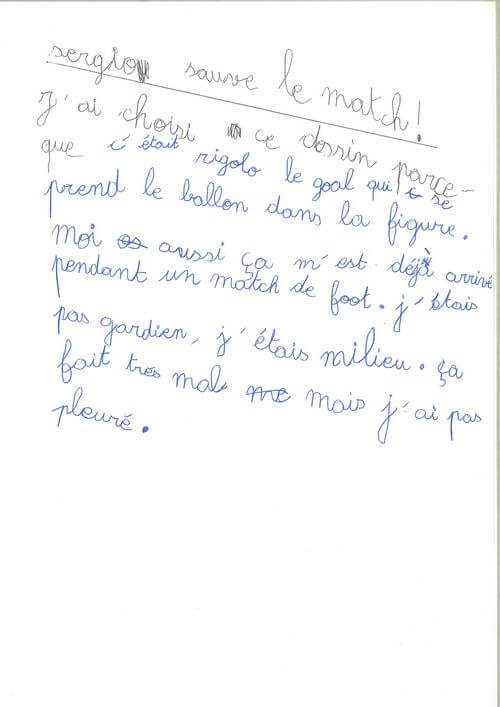 sergio sauve le match!
J'ai choisi ce dessin parce-
que c'était rigolo le goal qui sé
prend le ballon dans la figure.
Moi aussi ça m'est déjà arrivé
pendant un match de foot. j'étais
pas gardien, j'étais milieu. ça
fait trés mal mais j'ai pas
pleuré.